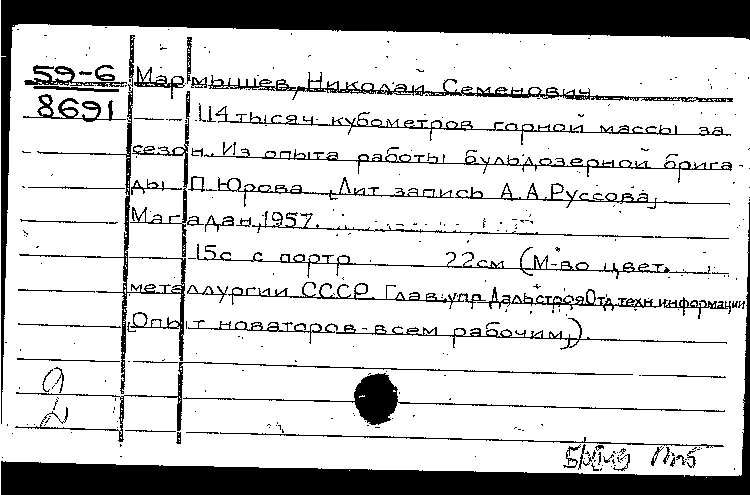 59-6 Мармышев, Николай Семенович.
8691 114 тысяч кубометров горной массы за
сезон. Из опыта работы бульдозерной брига-
ды П. Юрова [Лит запись А.А. Руссова]
Магадан, 1957.
15с с портр 22см (М-во цвет.
металлургии СССР. Глав. упр Дальстроя Отд. техн. информации
[Опыт новаторов - всем рабочим]).
2